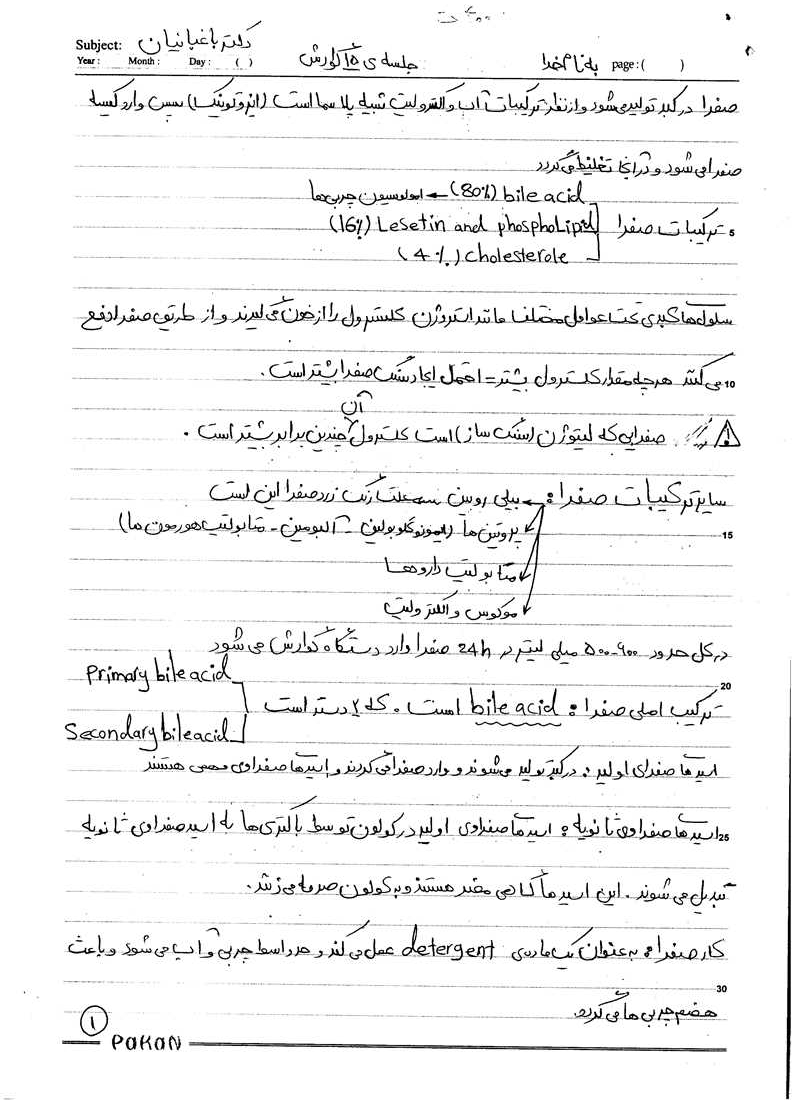 Subject: دکتر باغبانیان
Year: Month: Day: ( ) جلسه ی ۱۵ گوارش به نام خدا page: ( )
صفرا در کبد تولید می شود و از نظر ترکیبات آب و الکترولیت شبیه پلاسما است (ایزوتونیک) سپس وارد کیسه
صفرا می شود و در آنجا تغلیظ می گردد
(80%) bile acid ← امولسیون چربی ها
5 ترکیبات صفرا (16%) Lesetin and phosphoLipid
(4%) cholesterole
سلول های کبدی تحت عوامل مختلف مانند استروژن کلسترول را از خون می گیرند و از طریق صفرا دفع
10 می کنند هرچه مقدار کلسترول بیشتر = احتمال ایجاد سنگ صفرا بیشتر است.
صفرایی که لیتوژن (سنگ ساز) است کلسترول آن چندین برابر بیشتر است.
سایر ترکیبات صفرا: بیلی روبین علت رنگ زرد صفرا این است
15 پروتئین ها (ایمونوگلوبولین - آلبومین - متابولیت هورمون ها)
متابولیت داروها
موکوس و الکترولیت
در کل حدود ۵۰۰-۹۰۰ میلی لیتر در 24h صفرا وارد دستگاه گوارش می شود
20 primary bile acid
ترکیب اصلی صفرا: bile acid است. که ۲ دسته است
Secondary bile acid
اسید های صفرای اولیه: در کبد تولید می شوند و وارد صفرا می گردند و اسید های صفراوی مهمی هستند
25 اسید های صفراوی ثانویه: اسید های صفراوی اولیه در کولون توسط باکتری ها به اسید صفراوی ثانویه
تبدیل می شوند. این اسید ها گاهی مضر هستند و به کولون صدمه می زنند.
کار صفرا: به عنوان یک ماده ی detergent عمل می کند و حد واسط چربی و آب می شود و باعث
30 هضم چربی ها می گردد.
۱
PAKAN